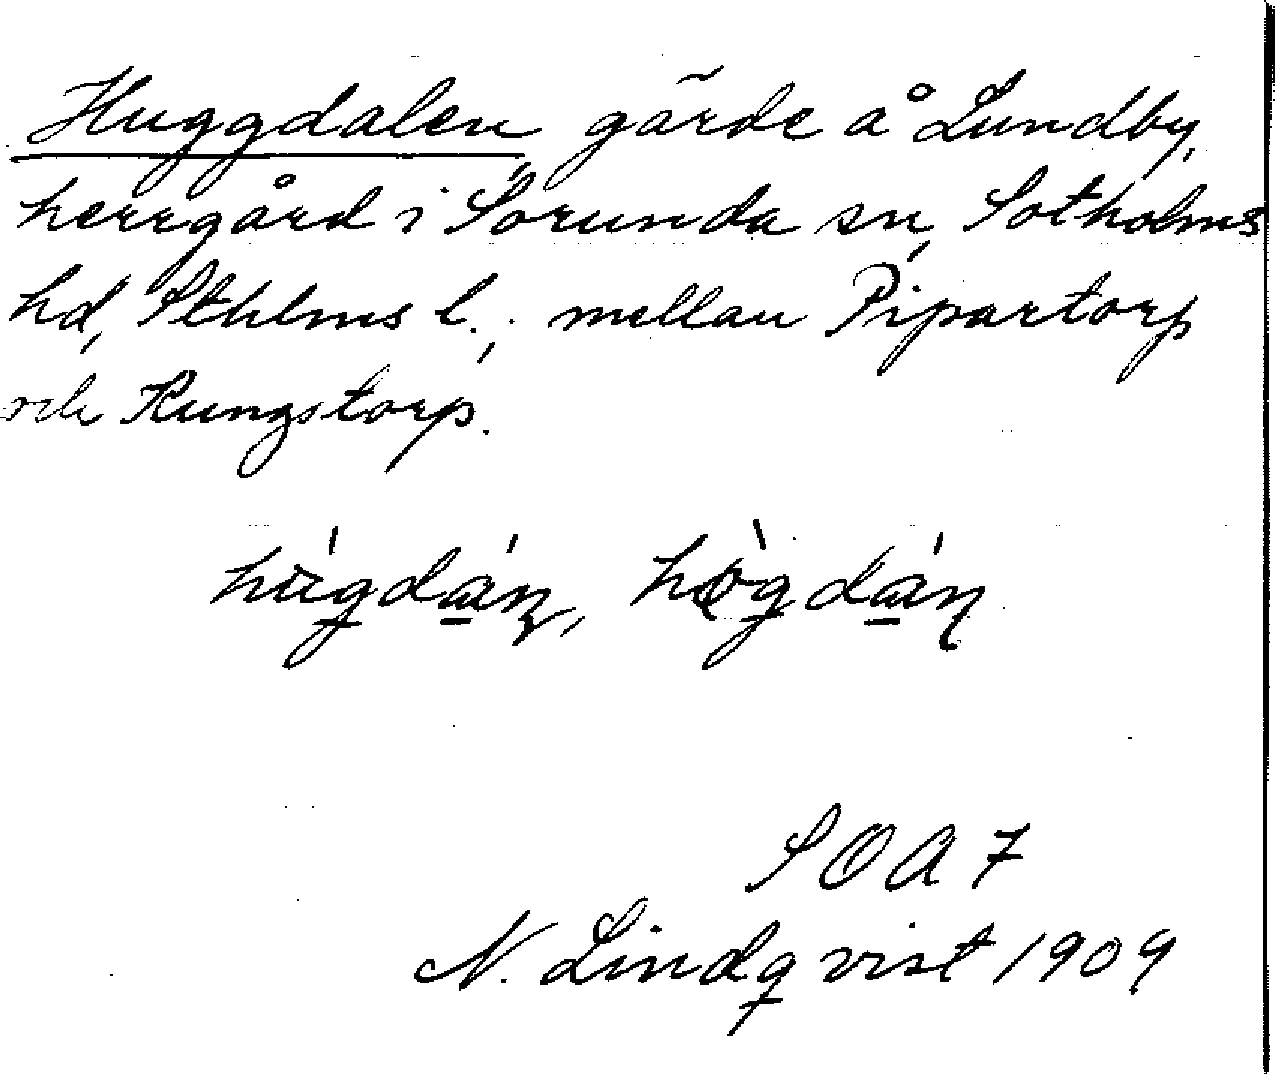 Huggdalen, gärde å Lundby,
herrgård i Sorunda sn, Sotholms
hd, Sthlms l., mellan Pipartorp
och Kungstorp.
SOA 7
N. Lindqvist 1909